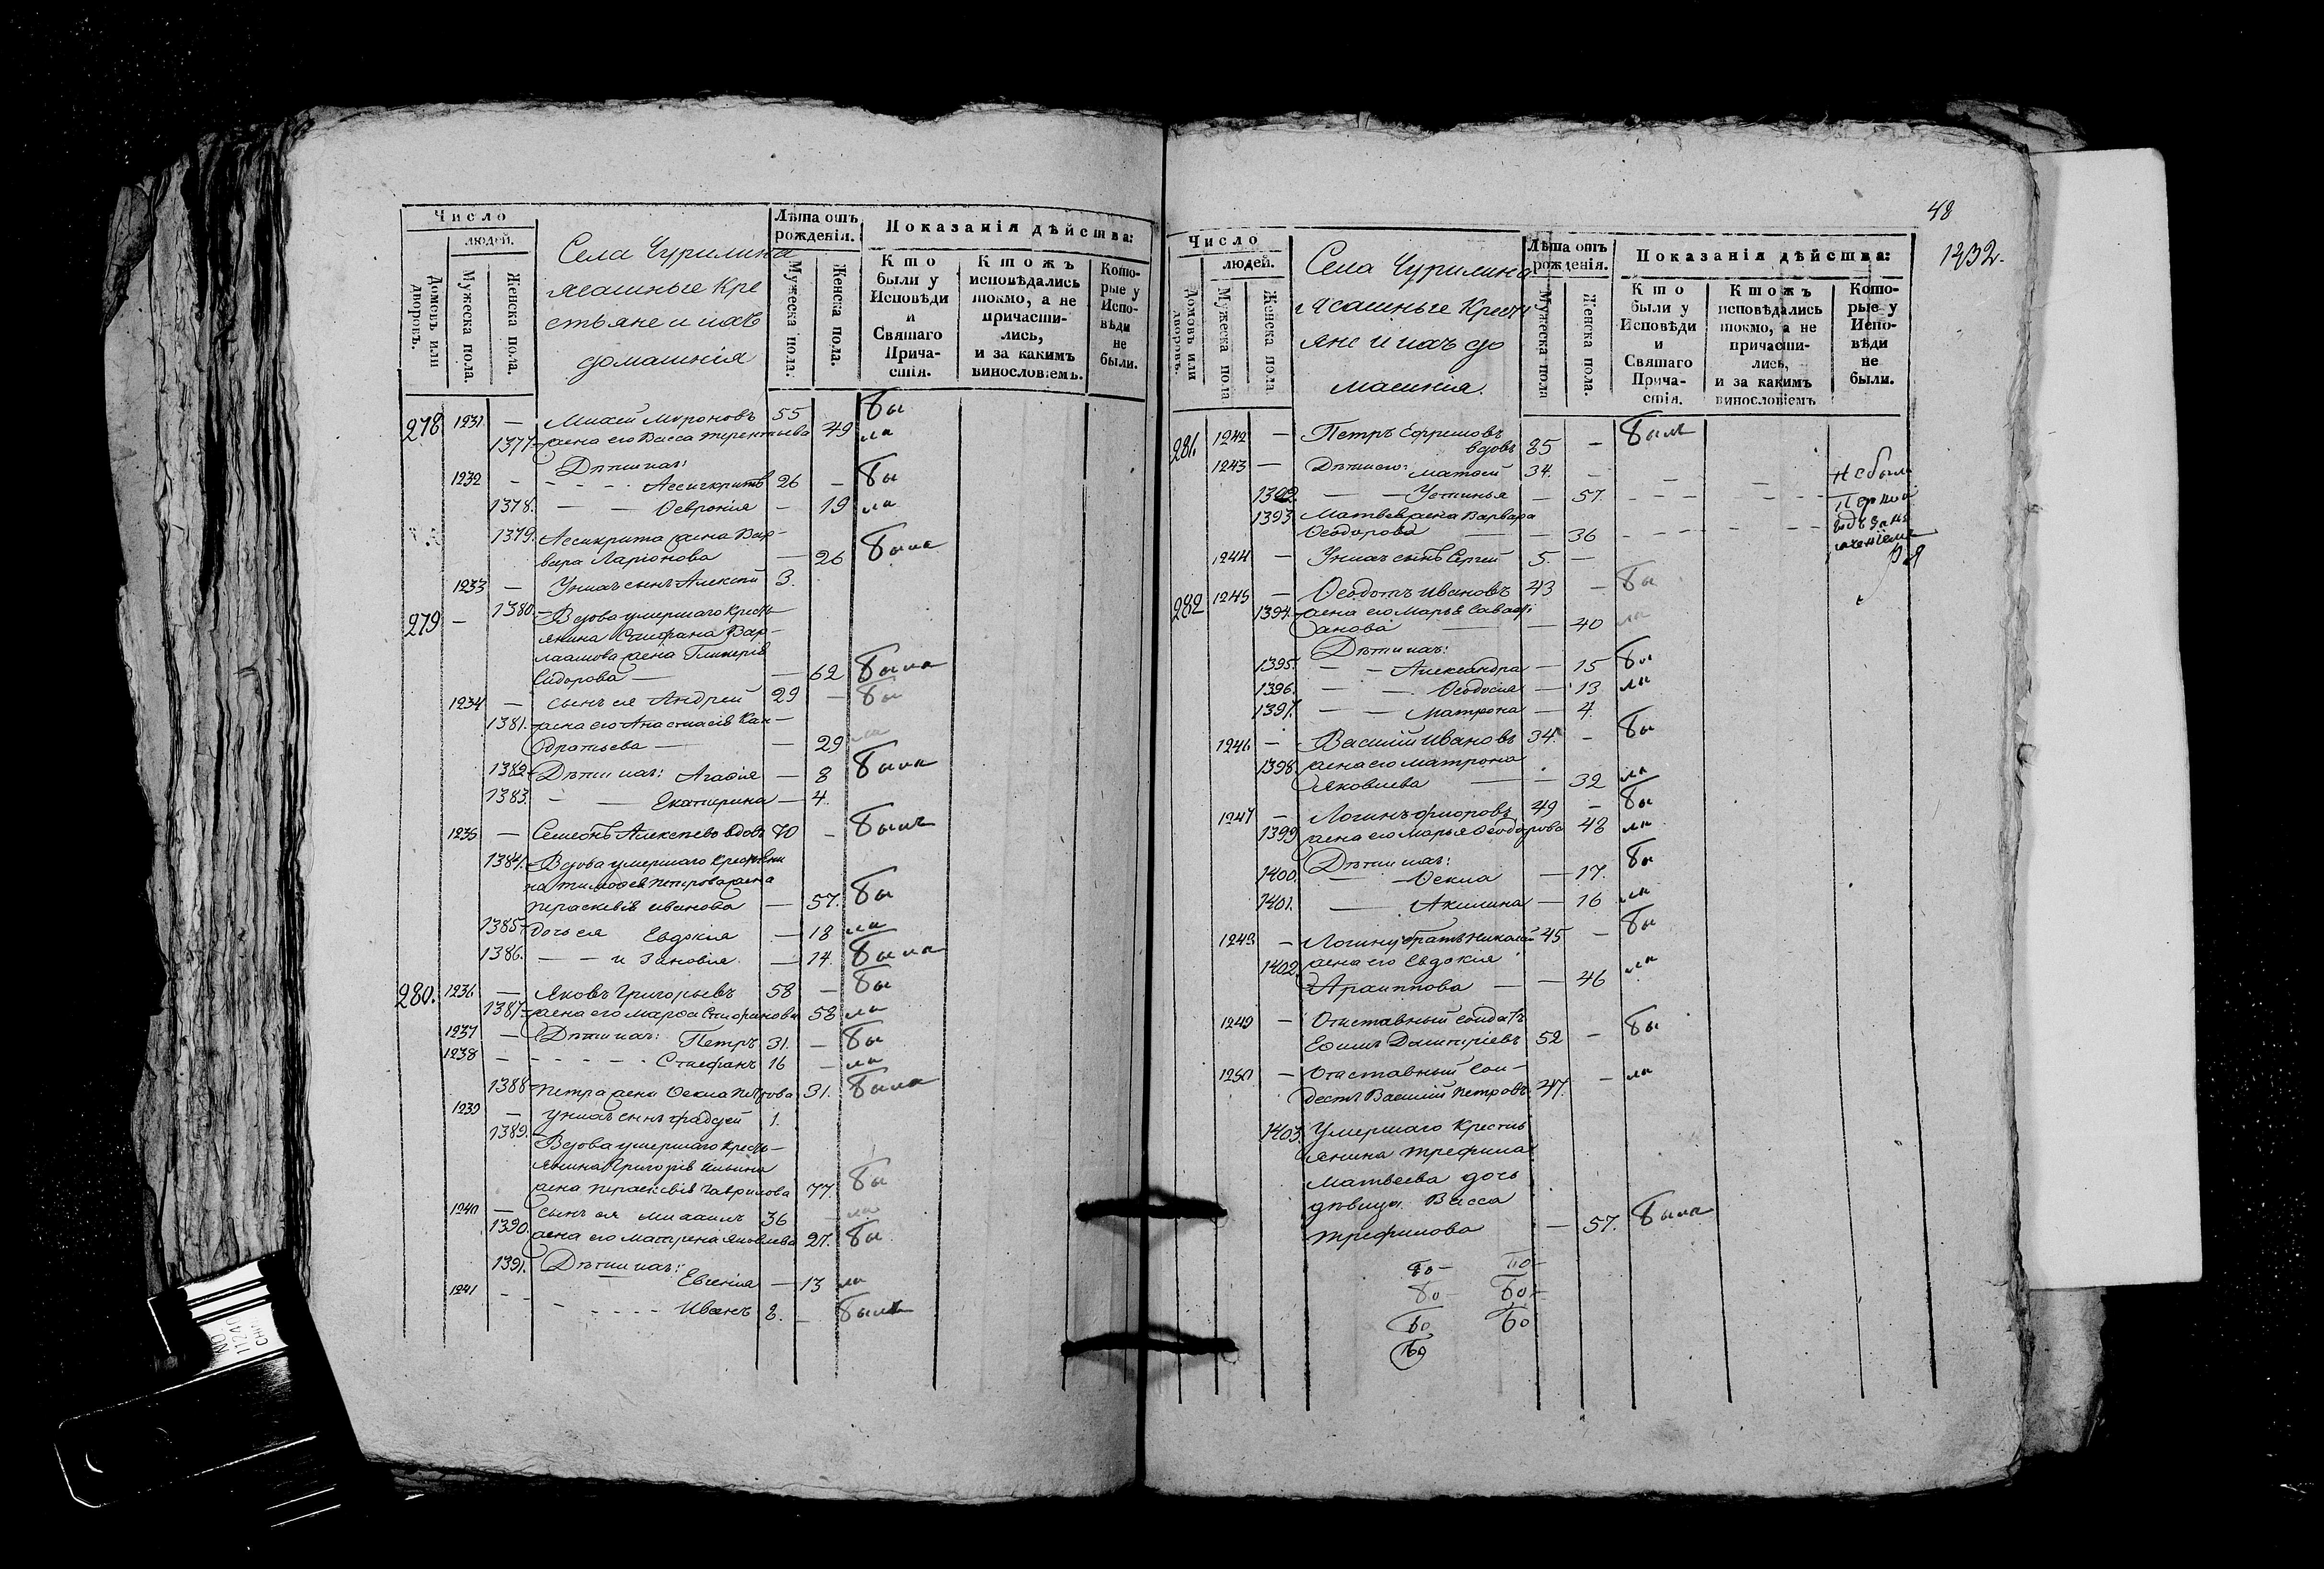 Число
людей.
Домовъ или дворовъ.
Мужеска пола.
Женска пола.
Села Чурилина
ясашные кре
стьяне и ихъ
домашнія
Лѣта отъ рожденія.
Мужеска пола.
Женска пола.
Показанія дѣйства:
Кто были у Исповѣди и Святаго Причастія.
Ктожъ исповѣдались токмо, а не причастились, и за какимъ винословіемъ.
Которые у Исповѣди не были.
278 1231 — Мироновъ 55 бы
1377 жена его Васса Терентьева 49 ли
Дѣти ихъ:
1232 - Ассигкритъ 26 - бы
1378. — — Ѳевронія - 19 ли
1379. Ассикрита жена Вар-
вара Ларіонова — 26 была
1233 — У нихъ сынъ Алексѣй 3.
279 — 1380. Вдова умершаго кресть-
янина Стефана Вар-
лаамова жена Гликерія
Сидорова — — 62 была
1234 — сынъ ея Андрей 29 — бы
1381. жена его Анастасія Кон-
дратьева — — 29 ли
1382 Дѣти ихъ: Агаѳія — 8 была
1383. - — Екатерина — 4.
1235 — Семеонъ Алексѣевъ вдовъ 70 - былъ
1384. Вдова умершаго крестьяни
на Тимоѳея Петрова жена
Параскевія Иванова — 57. бы
1385 дочь ея Евдокія — 18 ли
1386. — — и Зиновія. — 14. была
280. 1236 — Яковъ Григорьевъ 58 — бы
1387 жена его Марѳа Стефанова 58 ли
1237 — Дѣти ихъ: Петръ 31. — бы
1238 - - - - Стефанъ 16 — ли
1388 Петра жена Ѳекла Петрова 31. была
1239 — у нихъ сынъ 1.
1389. Вдова умершаго кресть-
янина Григорія Ильина
жена Параскевія Гаврилова 77. бы
1240 — сынъ ея Михаилъ 36 — ли
1390. жена его Матрена Яковлева 27. бы
1391. Дѣти ихъ: Евгенія — 13 ли
1241 - - - - Иванъ 8. — былъ
48
1232.
Число
людей.
Домовъ или дворовъ.
Мужеска пола
Женска пола.
Села Чурилина
ясашные Кресть
яне и ихъ до
машнія.
Лѣта отъ рожденія.
Мужеска пола
Женска пола.
Показанія дѣйства:
Кто были у Исповѣди и Святаго Причастія.
Ктожъ исповѣдались токмо, а не причастились, и за какимъ винословіемъ
Которые у Исповѣди не были.
281. 1242 — Петръ Ефремовъ
вдовъ 85 — былъ
1243 — Дѣти его: Матѳей 34. — — — не были
1392. — — Устинья — 57. - - -
1393. Матвея жена Варвара
Ѳеодорова — — 36 - - -
1244 — У нихъ сынъ Сергей 5. —
282 1245 — Ѳеодотъ Ивановъ 43 — бы
1394. жена его Марья Саваѳ
анова — — 40 ли
Дѣти ихъ:
1395. — — Александра — 15 бы
1396. — — Ѳеодосія — 13 ли
1397. — — Матрона — 4.
1246 — Василій Ивановъ 34. — бы
1398 жена его Матрона
Яковлева — — 32 ли
1247 — Логинъ Фроловъ 49 — бы
1399 жена его Марья Ѳеодорова 48 ли
Дѣти ихъ:
1400. — Ѳекла — 17. бы
1401. — Акилина — 16 ли
1248 — Логину братъ Николай 45 — бы
1402. жена его Евдокія
Архиппова — — 46 ли
1249 — Отставный солдатъ
Ефимъ Димитріевъ 52 — бы
1250 — Отставный сол-
датъ Василій Петровъ 47. — ли
1403. Умершаго кресть
янина Трефила
Матвеева дочь
дѣвица Васса
Трефилова — 57. была